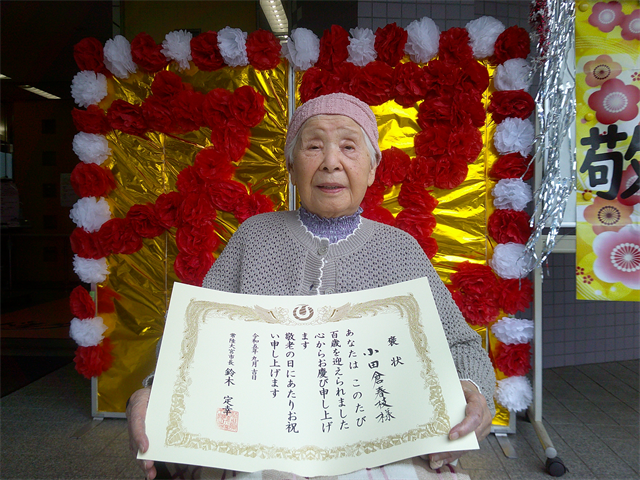 祝
敬
褒状
小田倉春枝様
あなたは このたび
百歳を迎えられました
心からお慶び申し上げ
ます
敬老の日にあたりお祝
い申し上げます
令和五年九月吉日
常陸大宮市長 鈴木 定幸